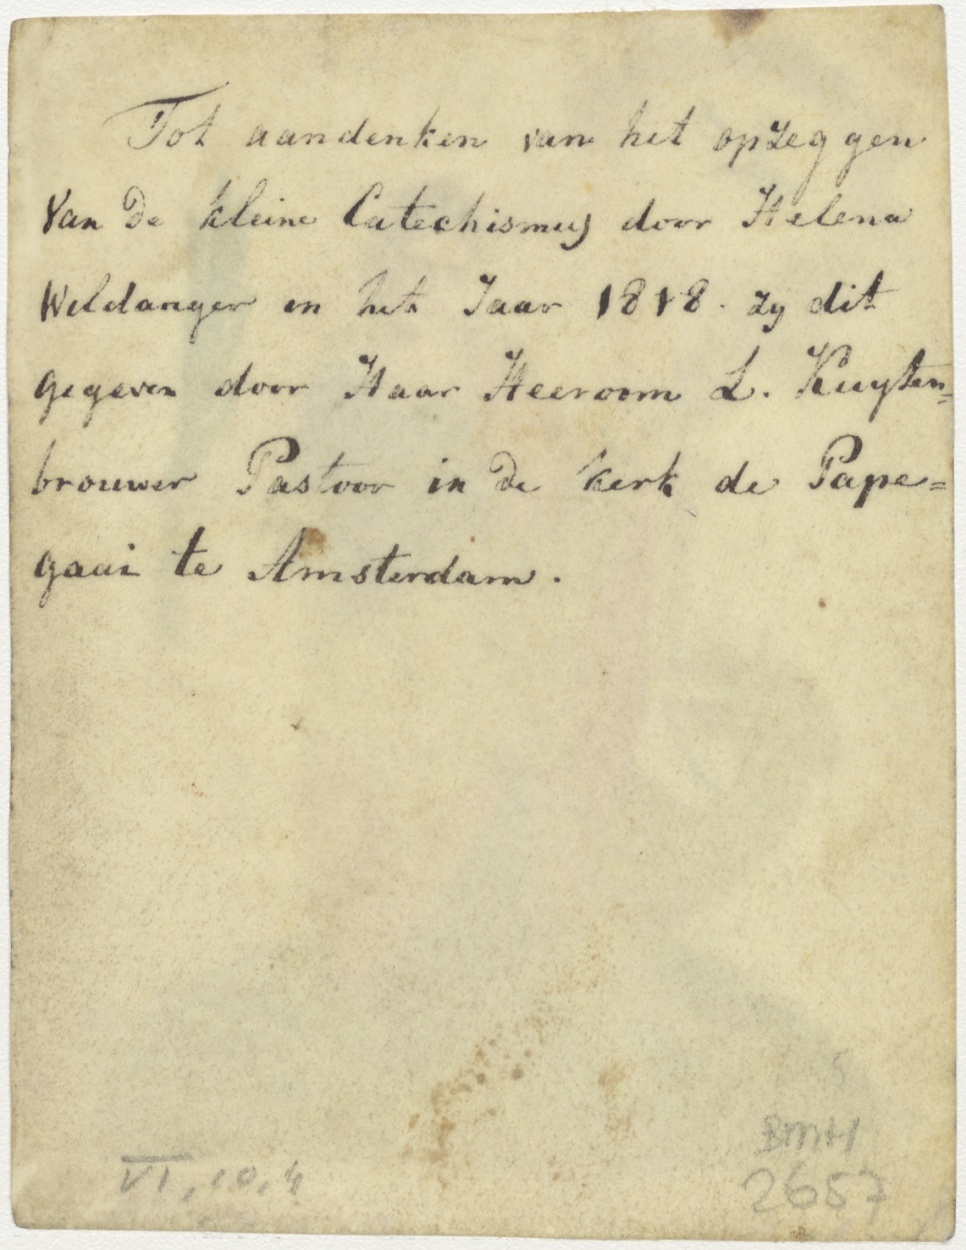 Tot aandenken van het opzeggen
Van de kleine Catechismus door Helena
Weldanger in het Jaar 1818. zy dit
gegeven door Haar Heeroom L. Kuyten=
brouwer Pastoor in de kerk de Pape=
gaai te Amsterdam.
BMH
VI, 10, 4
2657